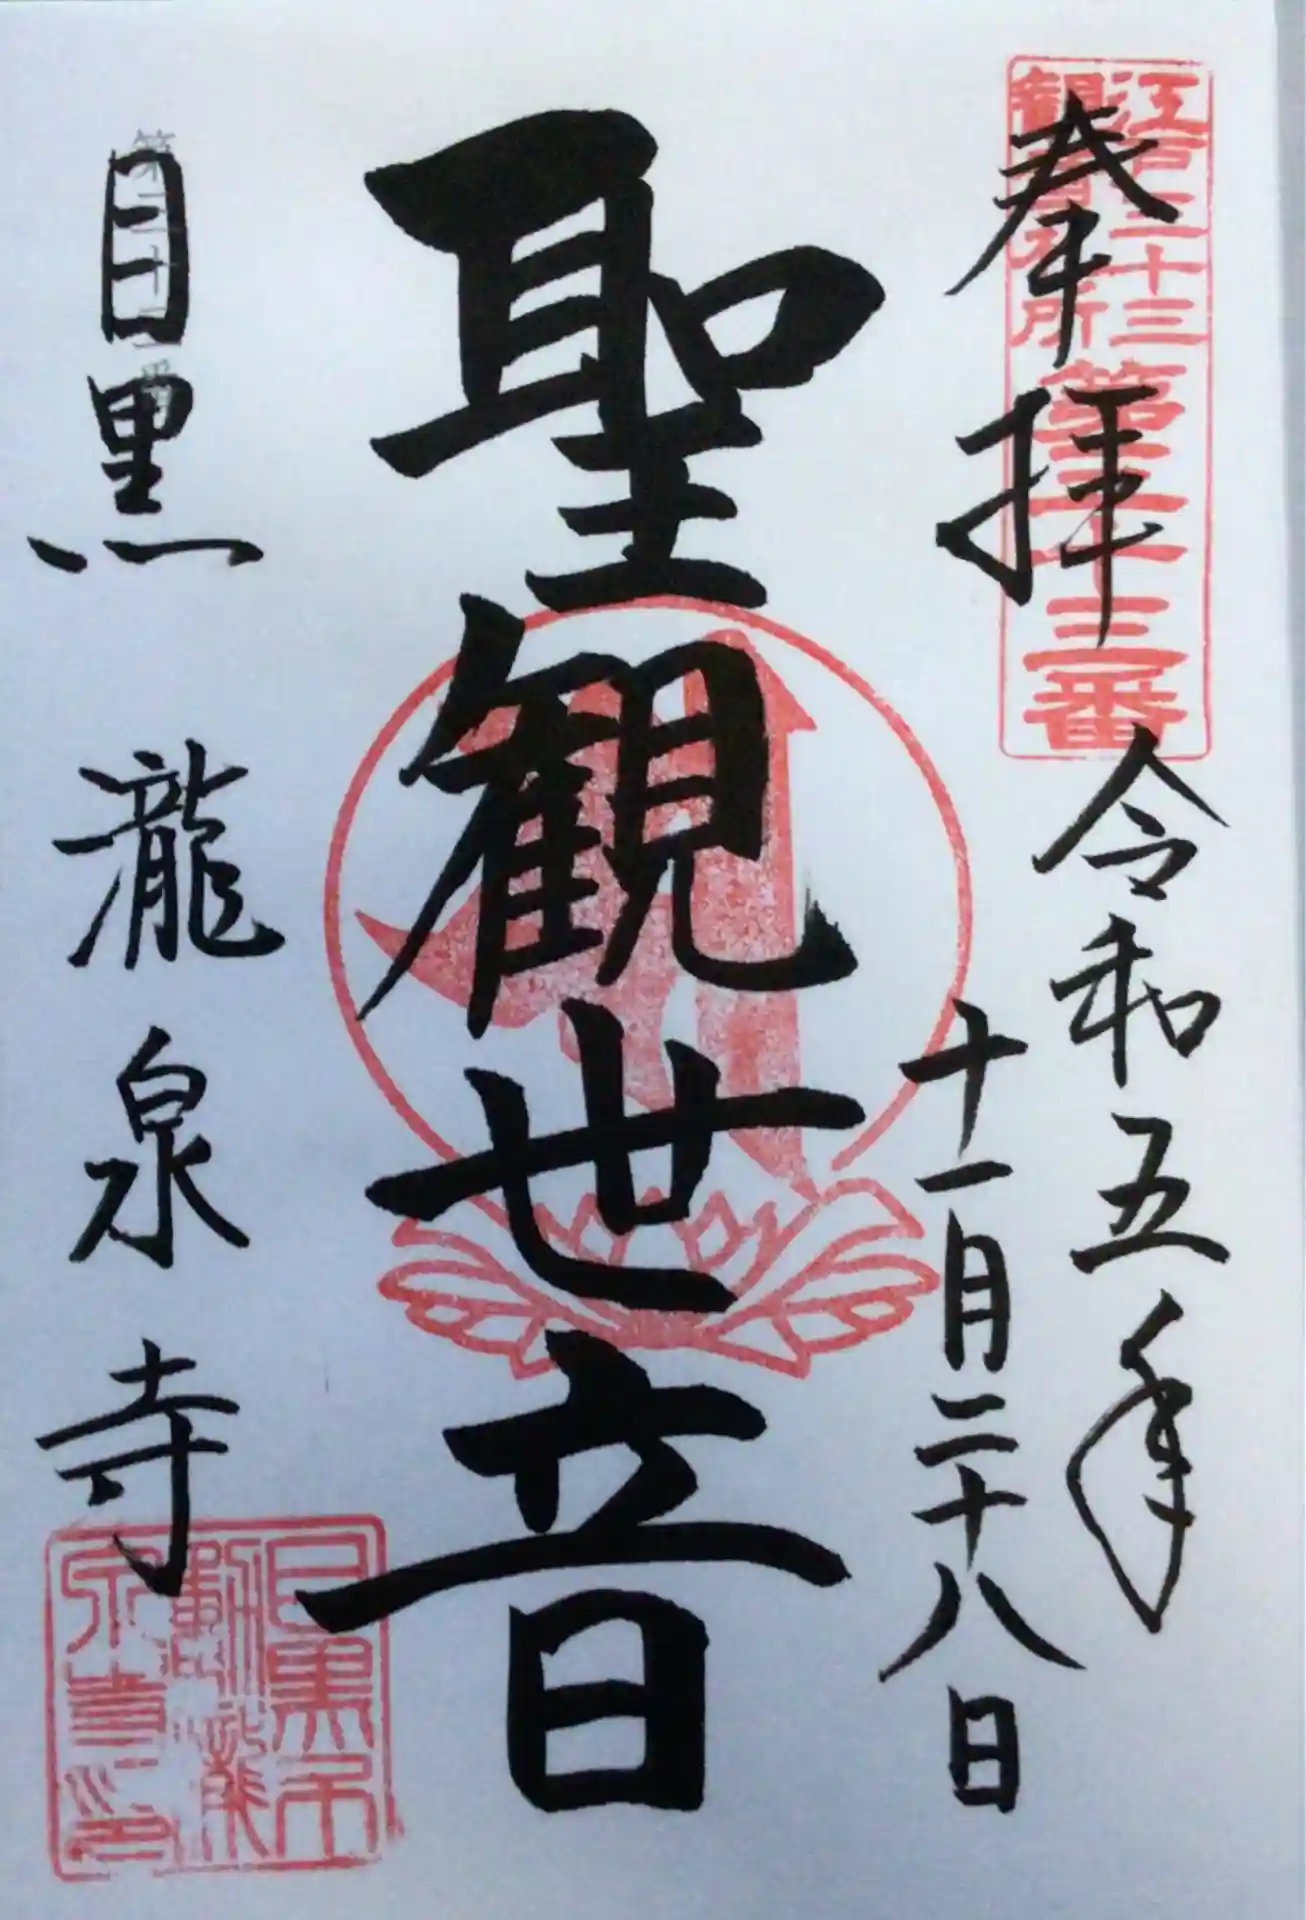 江戸三十三
観音札所
第三十三番
奉拝
令和五年
十一月二十八日
聖観世音
目黒 瀧泉寺